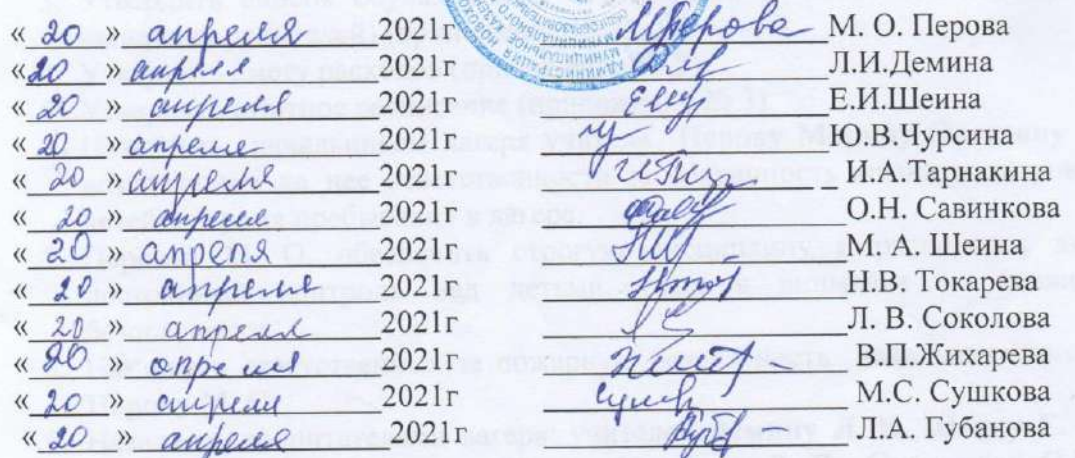 « 20 » апреля 2021г М. О. Перова
« 20 » апреля 2021г Л.И.Демина
« 20 » апреля 2021г Е.И.Шеина
« 20 » апреля 2021г Ю.В.Чурсина
« 20 » апреля 2021г И.А.Тарнакина
« 20 » апреля 2021г О.Н. Савинкова
« 20 » апреля 2021г М.А. Шеина
« 20 » апреля 2021г Н.В. Токарева
« 20 » апреля 2021г Л. В. Соколова
« 20 » апреля 2021г В.П.Жихарева
« 20 » апреля 2021г М.С. Сушкова
« 20 » апреля 2021г Л.А. Губанова